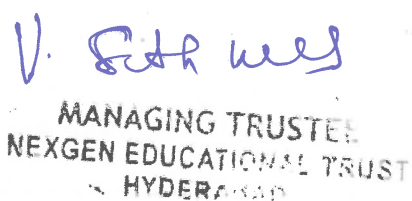 V.
MANAGING TRUSTEE
NEXGEN EDUCATIONAL TRUST
HYDERABAD